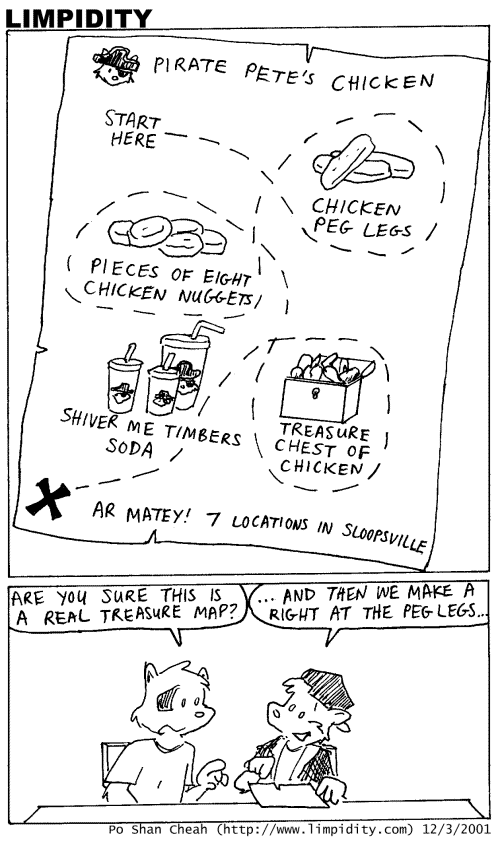 LIMPIDITY
PIRATE PETE'S CHICKEN
START
HERE
CHICKEN
PEG LEGS
PIECES OF EIGHT
CHICKEN NUGGETS
SHIVER ME TIMBERS
SODA
TREASURE
CHEST OF
CHICKEN
AR MATEY! 7 LOCATIONS IN SLOOPSVILLE
ARE YOU SURE THIS IS
A REAL TREASURE MAP?
... AND THEN WE MAKE A
RIGHT AT THE PEG LEGS...
Po Shan Cheah (http://www.limpidity.com) 12/3/2001